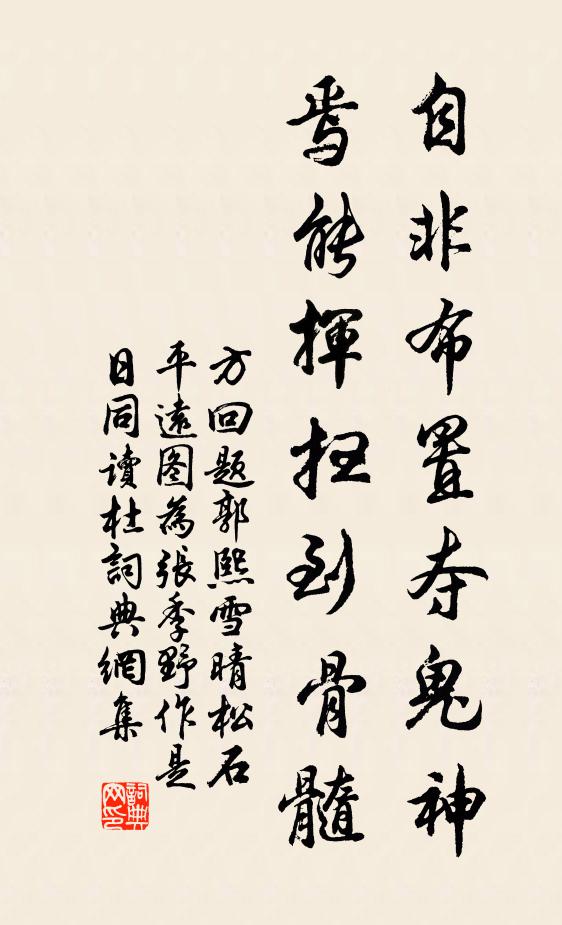 自非布置夺鬼神
焉能揮扫到骨髓
方回题郭熙雪晴松石
平遠图為張季野作是
日同讀杜詞典網集
詞典
网印